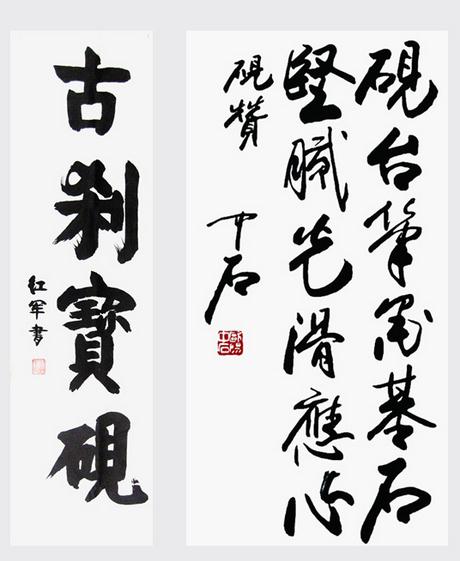 硯台筆墨基石
堅膩光滑應心
硯贊
中石
古刹寶硯
红军書